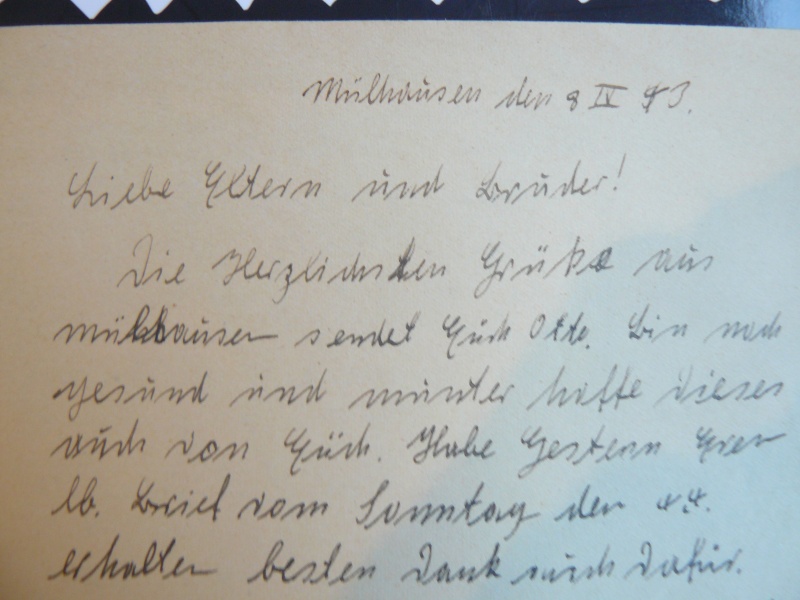 Mülhausen den 8 IV 43.
Liebe Eltern und Bruder!
Die Herzlichsten Grüße aus
Mülhausen sendet Euch Otto. Bin noch
gesund und munter hoffe dieses
auch von Euch. Habe Gestern Euer
lb. Brief vom Sonntag den 4.4.
erhalten besten Dank auch Dafür.